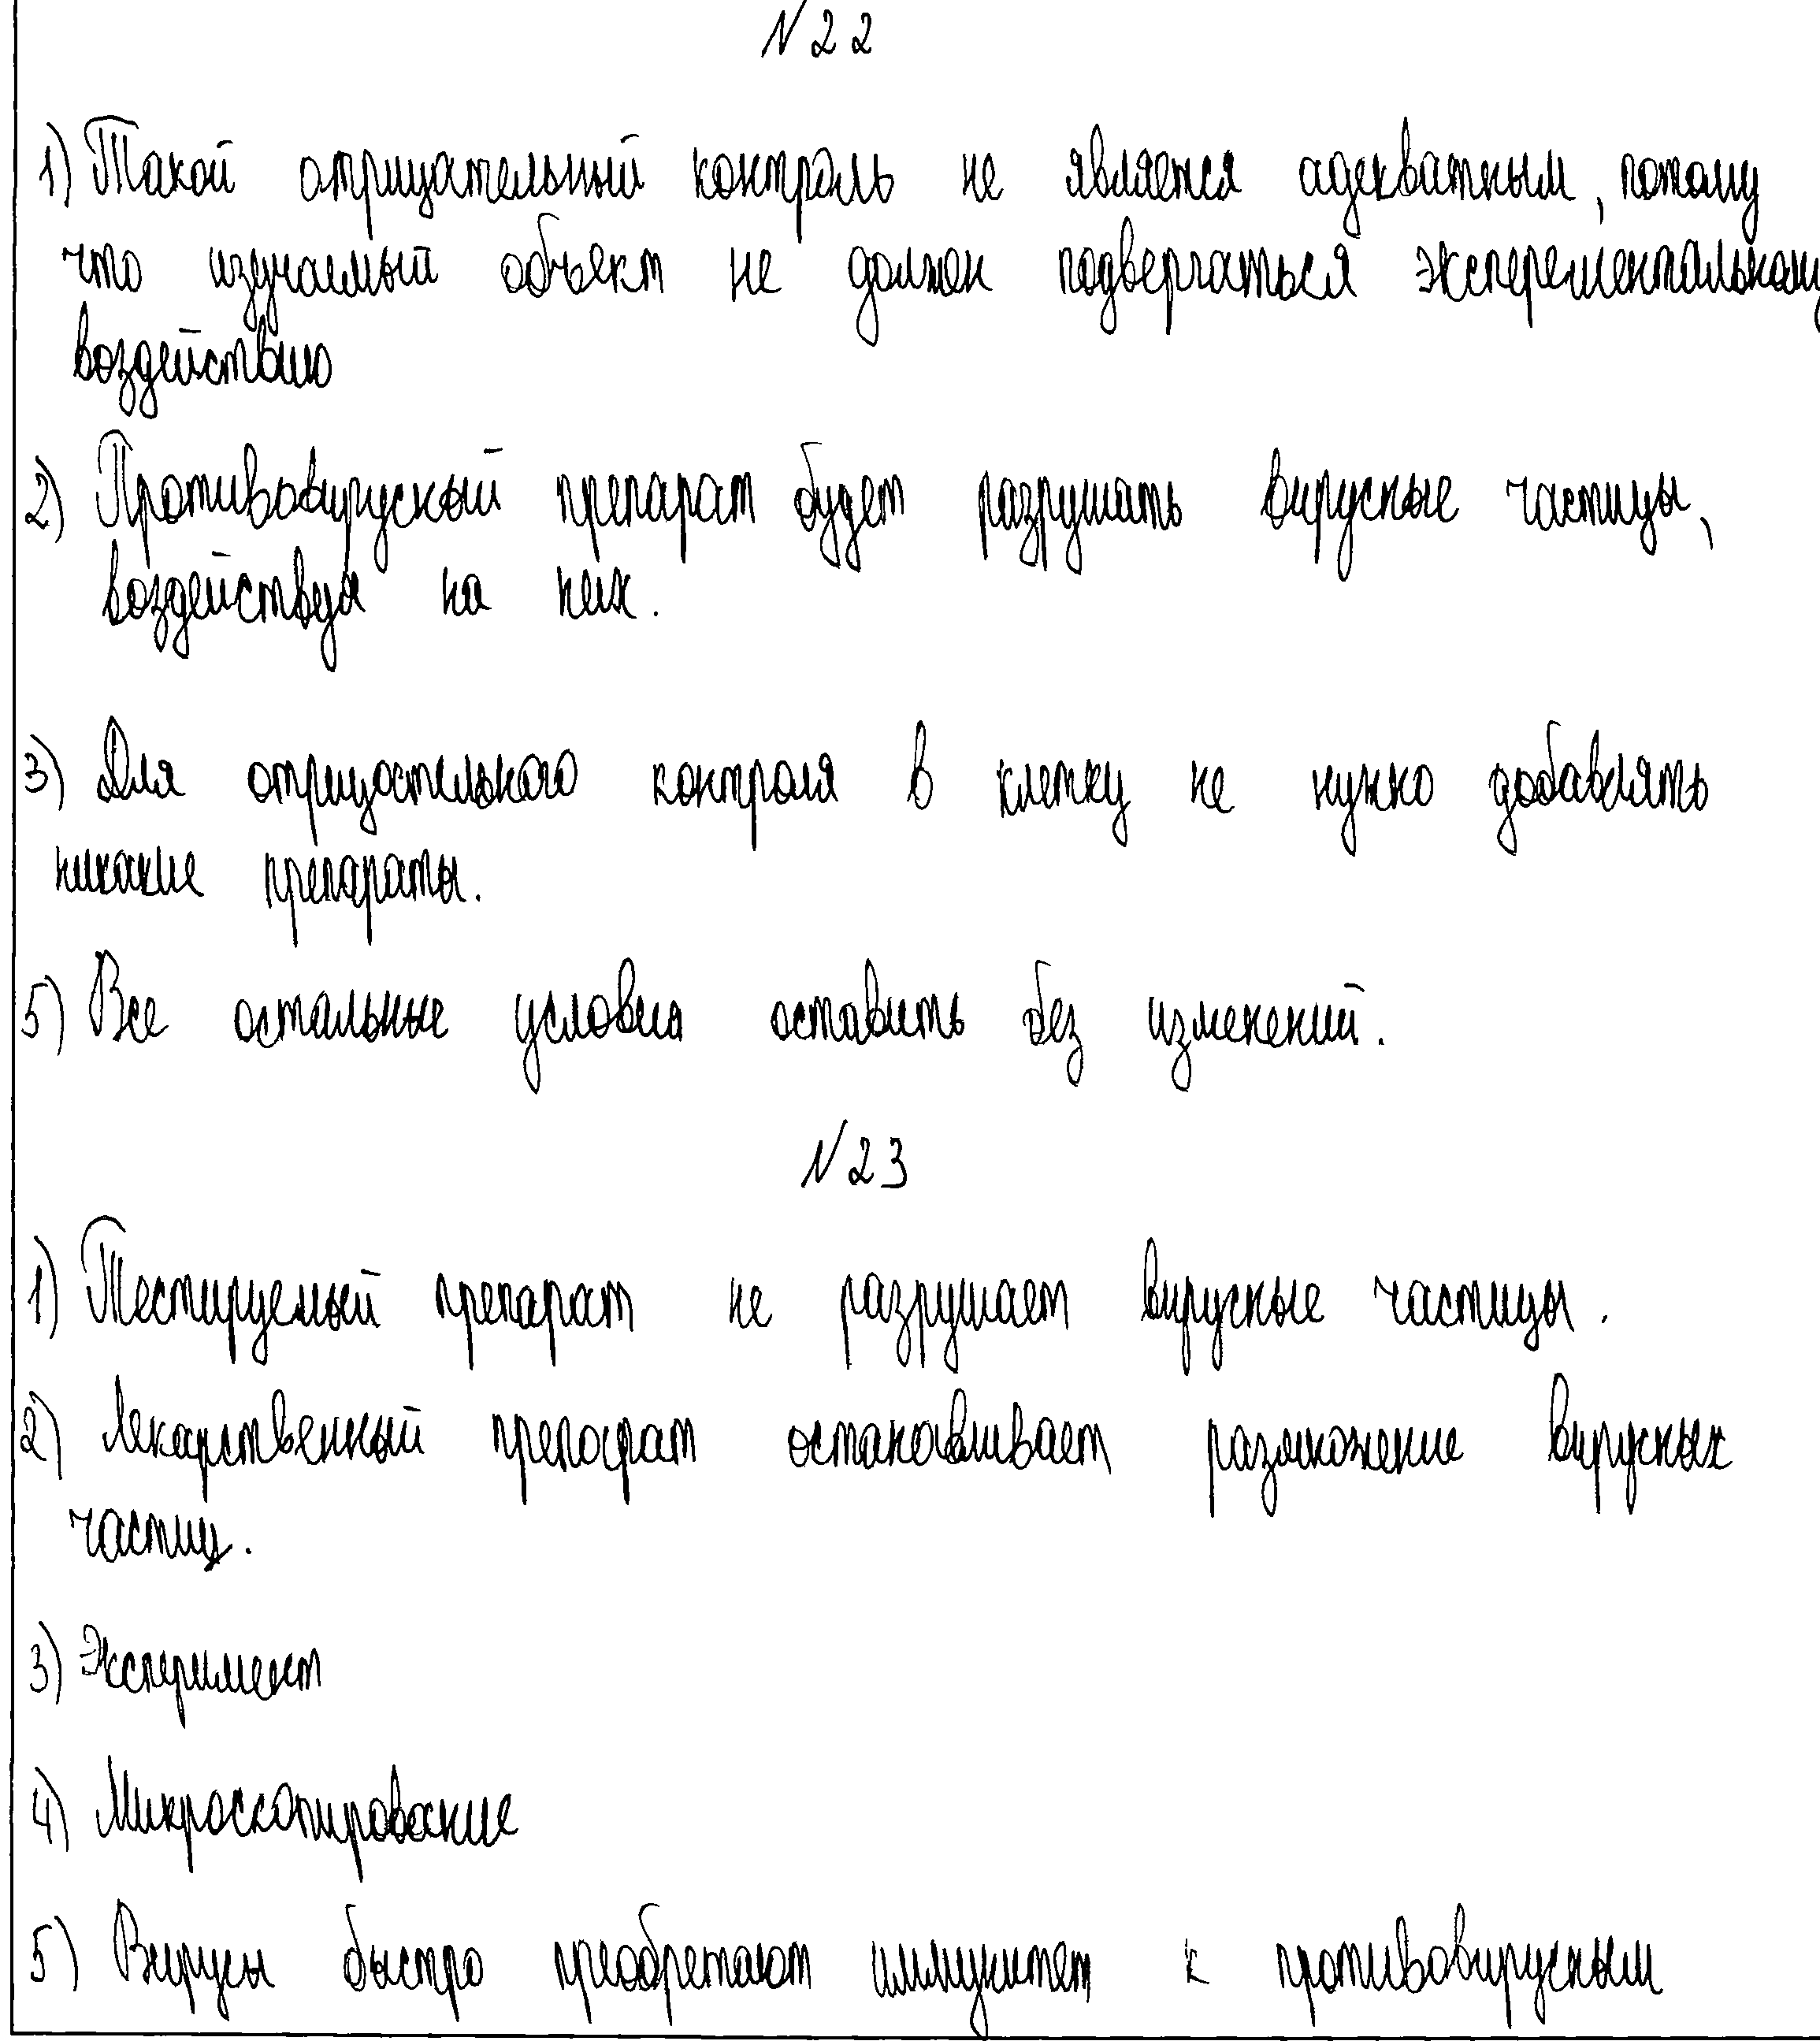 N22
1) Такой отрицательный контроль не является адекватным, потому
что изучаемый объект не должен подвергаться эксперементальному
воздействию
2) Противовирусный препарат будет разрушать вирусные частицы,
воздействуя на них.
3) Для отрицательного контроля в клетку не нужно добавлять
никакие препараты.
5) Все остальные условия оставить без изменений.
N23
1) Тестируемый препарат не разрушает вирусные частицы.
2) Лекарственный препарат останавливает размножение вирусных
частиц.
3) Эксперимент
4) Микроскопирование
5) Вирусы быстро приобретают иммунитет к противовирусным